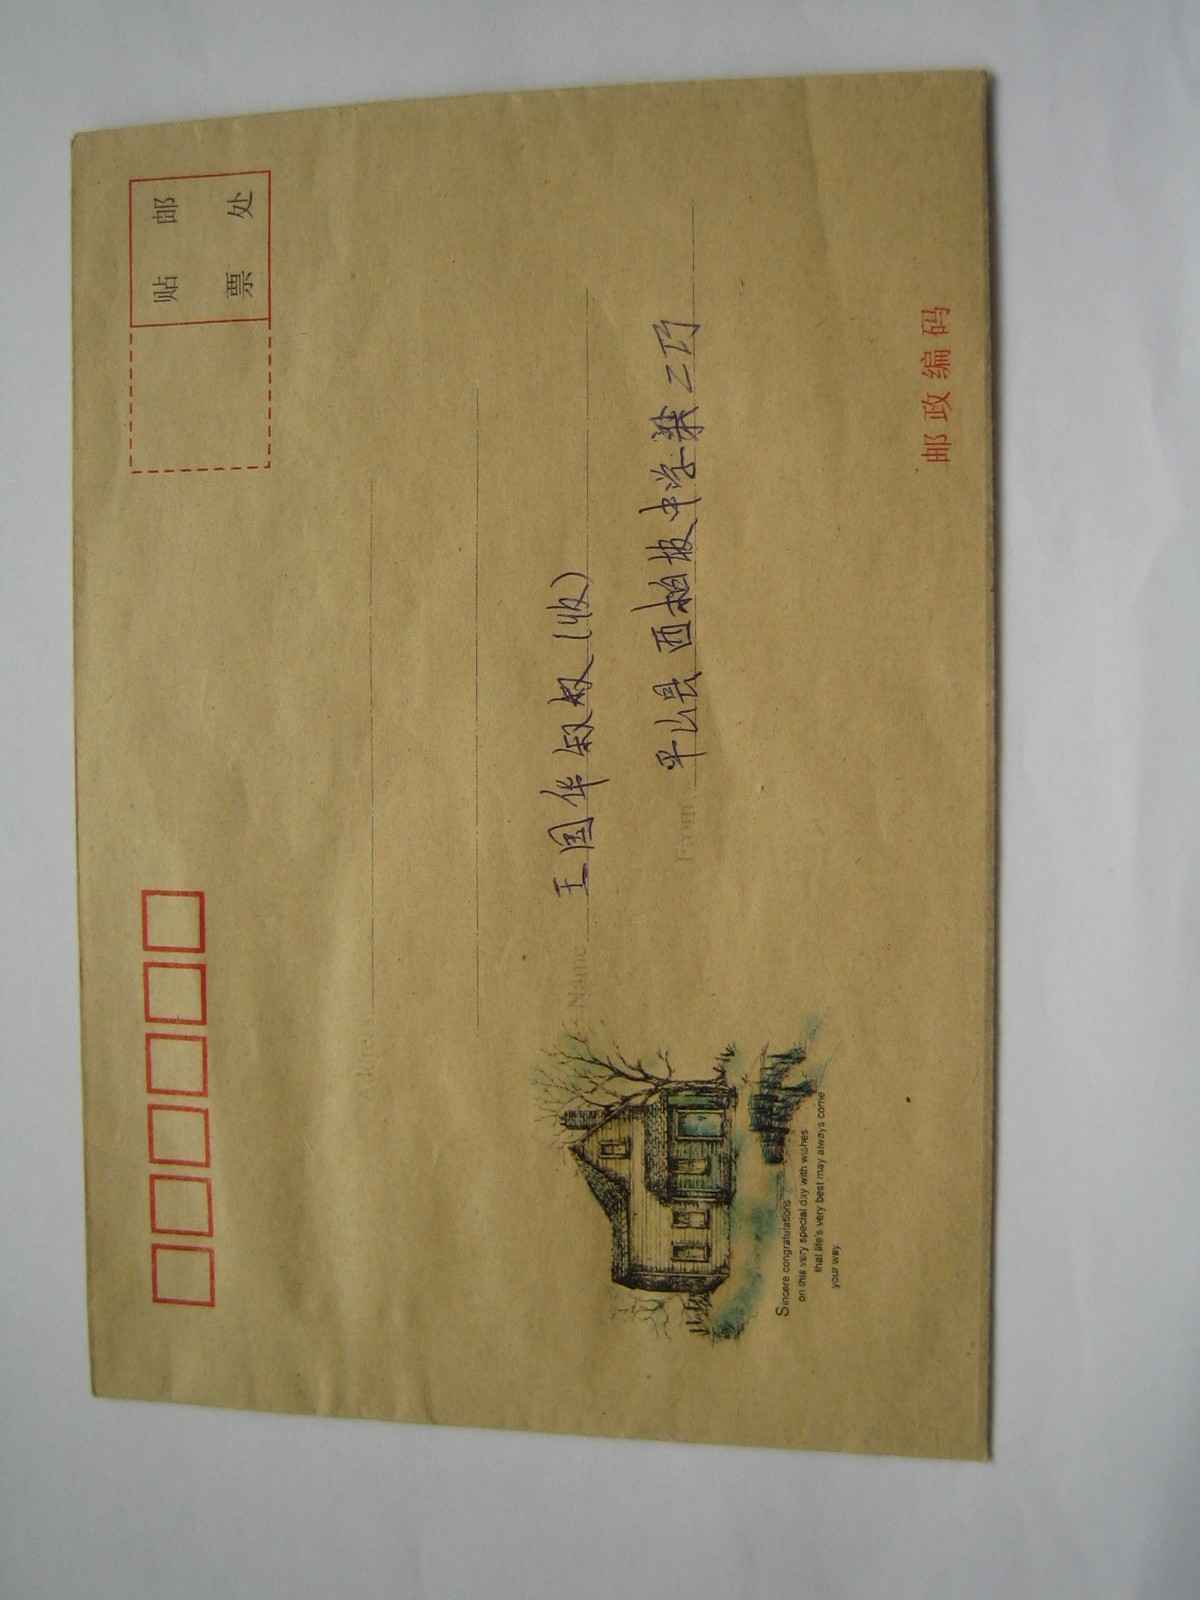 贴 邮
票 处
Name 王国华叔叔(收)
From 平山县西柏坡中学 梁乙巧
Sincere congratulations
on this very special day with wishes
that life's very best may always come
your way.
邮政编码